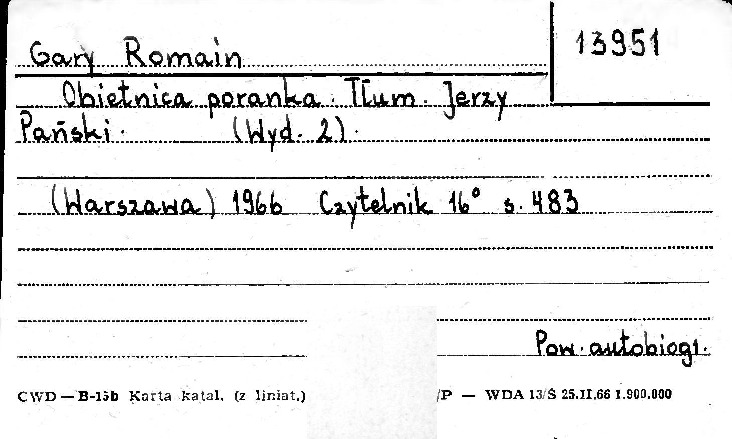 Gary Romain
13951
Obietnica poranka. Tłum. Jerzy
Pański. (Wyd. 2).
(Warszawa) 1966 Czytelnik 16° s. 483
Pow. autobiogr.
CWD — B-15b Karta katal. (z liniat.) /P — WDA 13/S 25.II.66 1.900.000